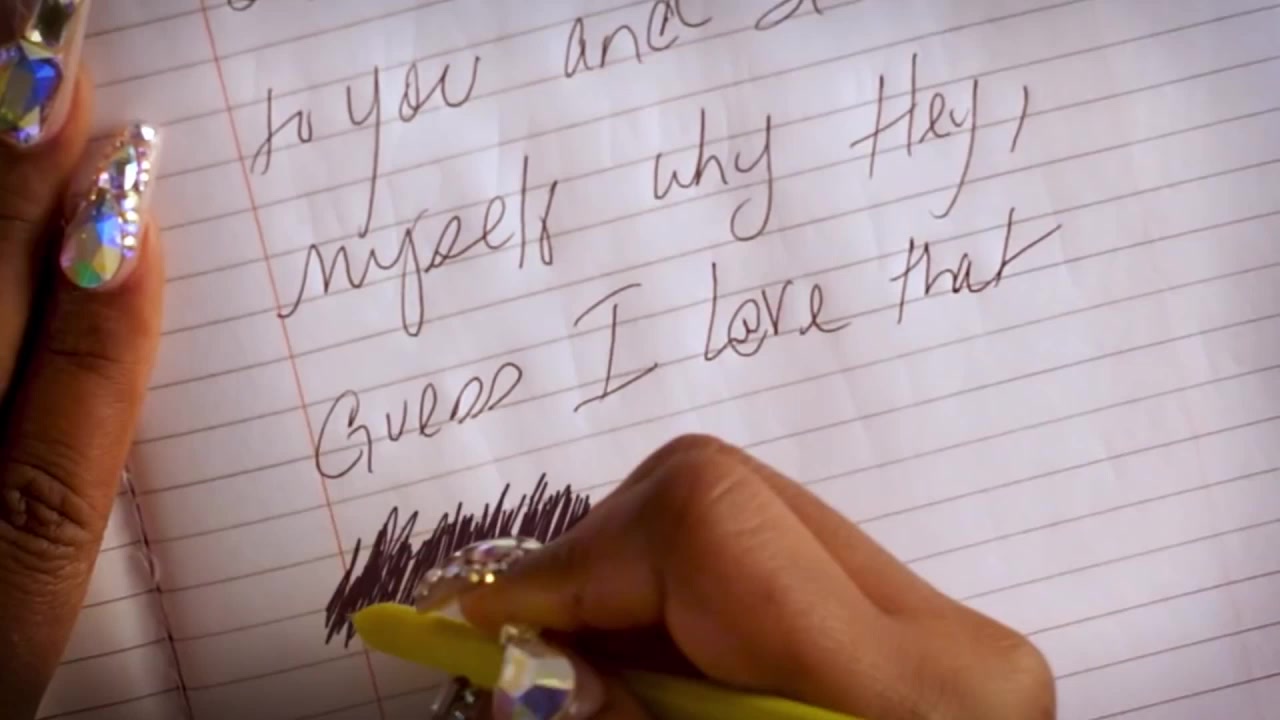 to you and
myself why Hey,
Guess I Love that